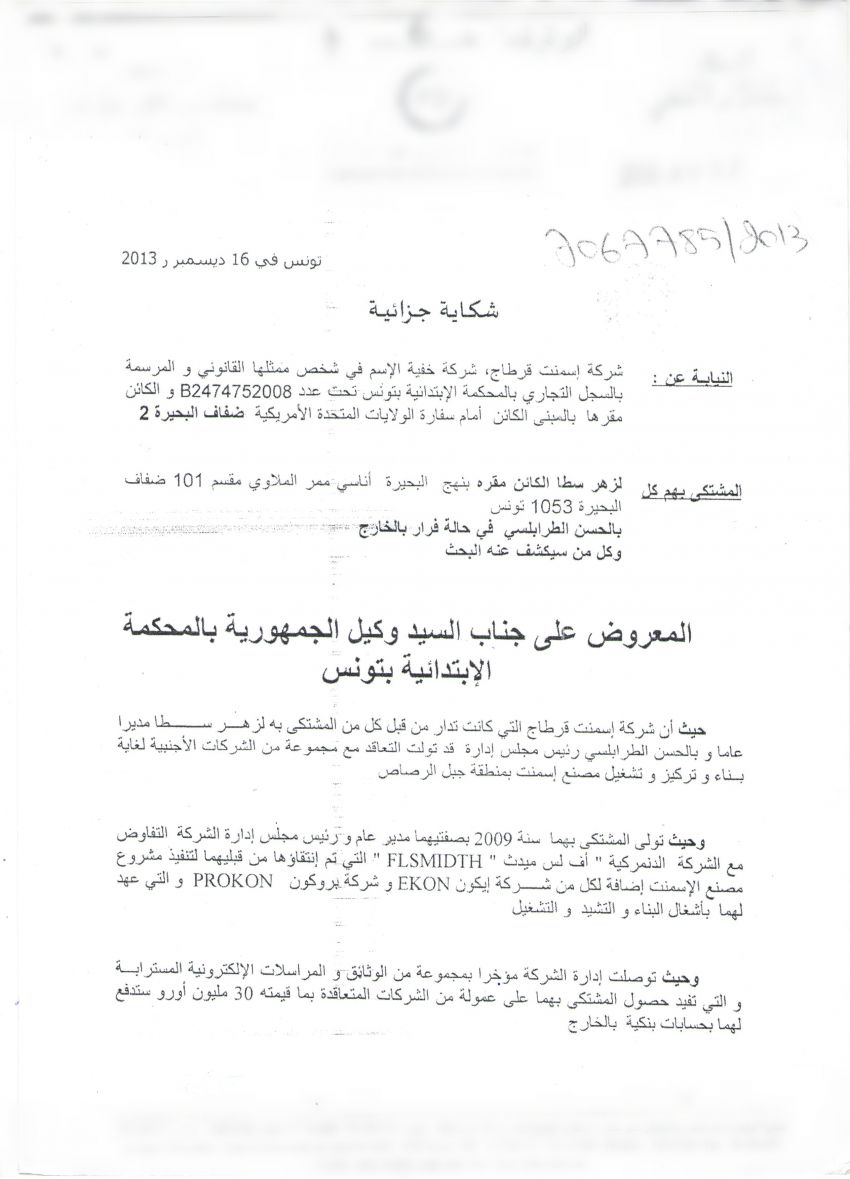 7067785/2013
تونس في 16 ديسمبر 2013
شكاية جزائية
النيابة عن :
شركة إسمنت قرطاج، شركة خفية الإسم في شخص ممثلها القانوني و المرسمة
بالسجل التجاري بالمحكمة الإبتدائية بتونس تحت عدد B2474752008 و الكائن
مقرها بالمبنى الكائن أمام سفارة الولايات المتحدة الأمريكية ضفاف البحيرة 2
المشتكى بهم كل
لزهر سطا الكائن مقره بنهج البحيرة أناسي ممر الملاوي مقسم 101 ضفاف
البحيرة 1053 تونس
بالحسن الطرابلسي في حالة فرار بالخارج
وكل من سيكشف عنه البحث
المعروض على جناب السيد وكيل الجمهورية بالمحكمة
الإبتدائية بتونس
حيث أن شركة إسمنت قرطاج التي كانت تدار من قبل كل من المشتكى به لزهر سطا مديرا
عاما و بالحسن الطرابلسي رئيس مجلس إدارة قد تولت التعاقد مع مجموعة من الشركات الأجنبية لغاية
بناء و تركيز و تشغيل مصنع إسمنت بمنطقة جبل الرصاص
وحيث تولى المشتكى بهما سنة 2009 بصفتيهما مدير عام و رئيس مجلس إدارة الشركة التفاوض
مع الشركة الدنمركية " أف لس ميدث " FLSMIDTH " التي تم إنتقاؤها من قبليهما لتنفيذ مشروع
مصنع الإسمنت إضافة لكل من شركة إيكون EKON و شركة بروكون PROKON و التي عهد
لهما بأشغال البناء و التشيد و التشغيل
وحيث توصلت إدارة الشركة مؤخرا بمجموعة من الوثائق و المراسلات الإلكترونية المسترابة
و التي تفيد حصول المشتكى بهما على عمولة من الشركات المتعاقدة بما قيمته 30 مليون أورو ستدفع
لهما بحسابات بنكية بالخارج